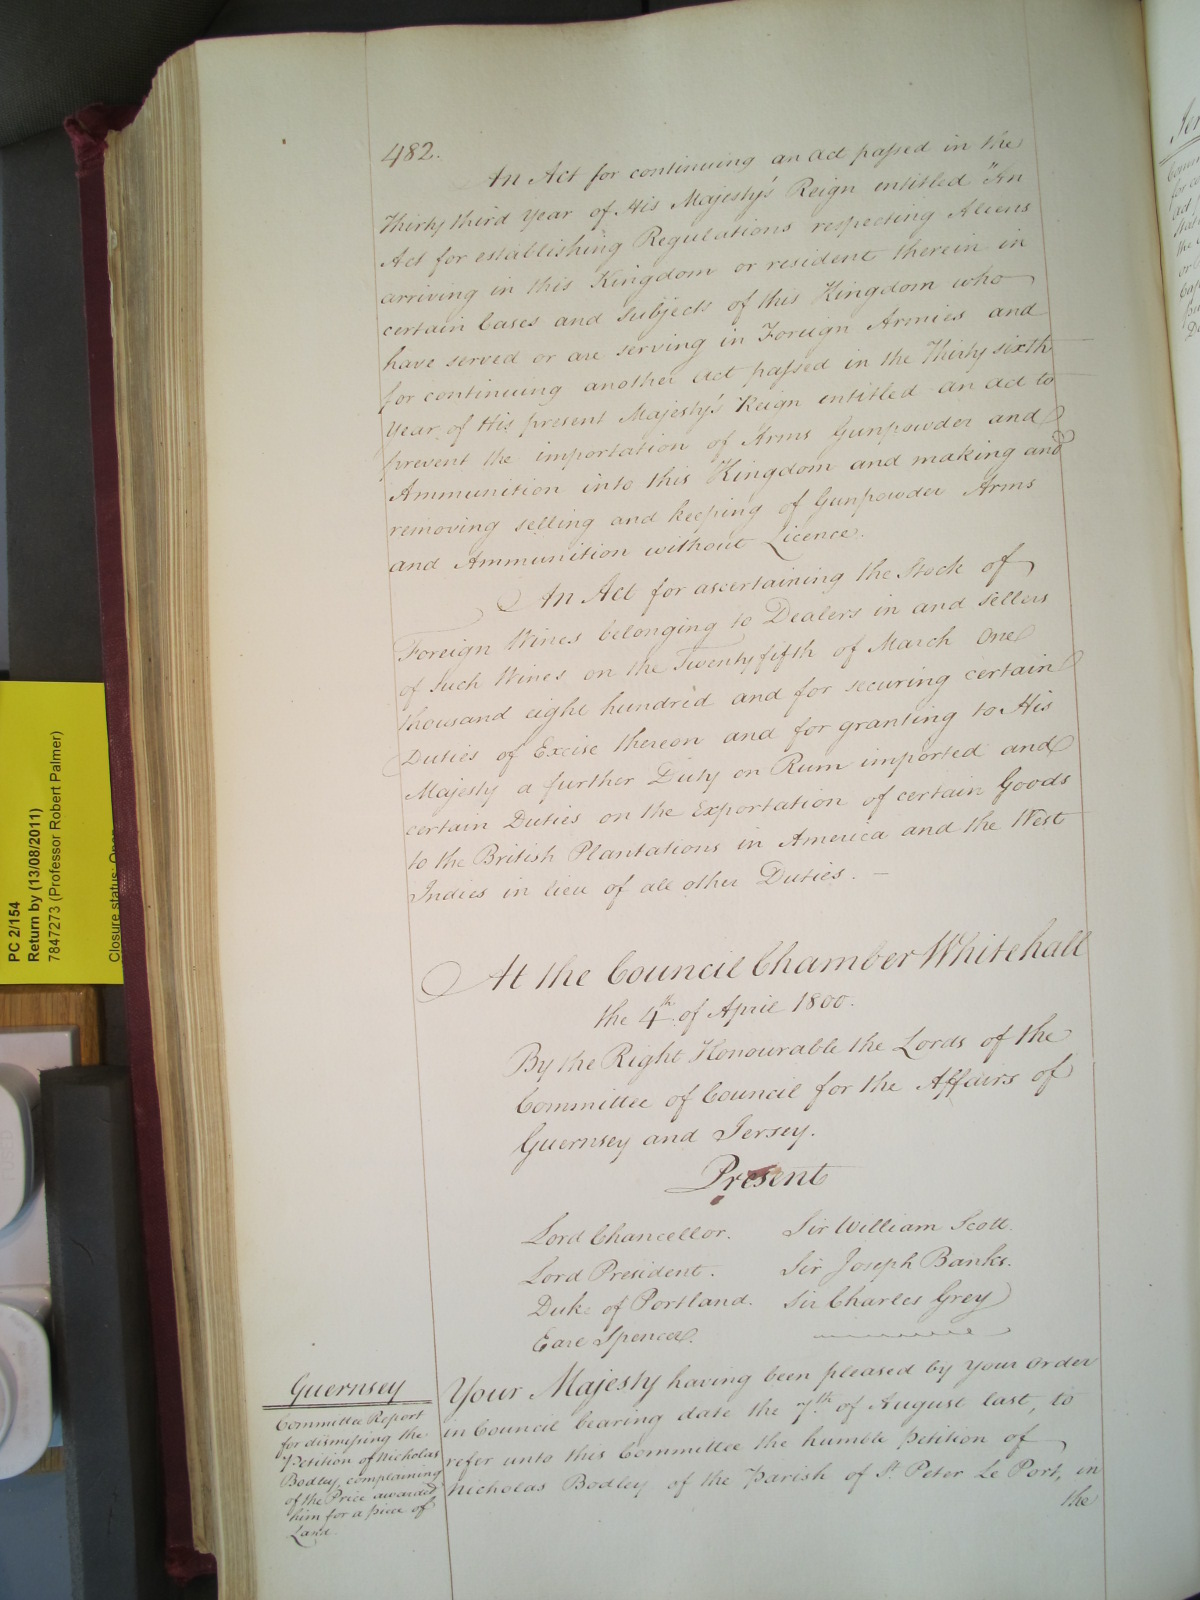 482.
An Act for continuing an act passed in the
Thirty third year of His Majesty's Reign entitled "An
Act for establishing Regulations respecting Aliens
arriving in this Kingdom or resident therein in
certain Cases and Subjects of this Kingdom who
have served or are serving in Foreign Armies and
for continuing another act passed in the Thirty sixth
year of His present Majesty's Reign entitled an act to
prevent the importation of Arms Gunpowder and
Ammunition into this Kingdom and making and
removing selling and keeping of Gunpowder Arms
and Ammunition without Licence.
An Act for ascertaining the Stock of
Foreign Wines belonging to Dealers in and Sellers
of such Wines on the Twenty fifth of March One
thousand eight hundred and for securing certain
Duties of Excise thereon and for granting to His
Majesty a further Duty on Rum imported and
certain Duties on the Exportation of certain Goods
to the British Plantations in America and the West
Indies in lieu of all other Duties. —
At the Council Chamber Whitehall
the 4th. of April 1800.
By the Right Honourable the Lords of the
Committee of Council for the Affairs of
Guernsey and Jersey.
Present
Lord Chancellor. Sir William Scott.
Lord President. Sir Joseph Banks.
Duke of Portland. Sir Charles Grey
Earl Spencer.
Guernsey
Committee Report
for dismissing the
Petition of Nicholas
Bodley, complaining
of the Price awarded
him for a piece of
Land.
Your Majesty having been pleased by Your Order
in Council bearing date the 7th. of August last, to
refer unto this Committee the humble Petition of
Nicholas Bodley of the Parish of St. Peter Le Port, in
the
PC 2/154
Return by (13/08/2011)
7847273 (Professor Robert Palmer)
Closure status: Open